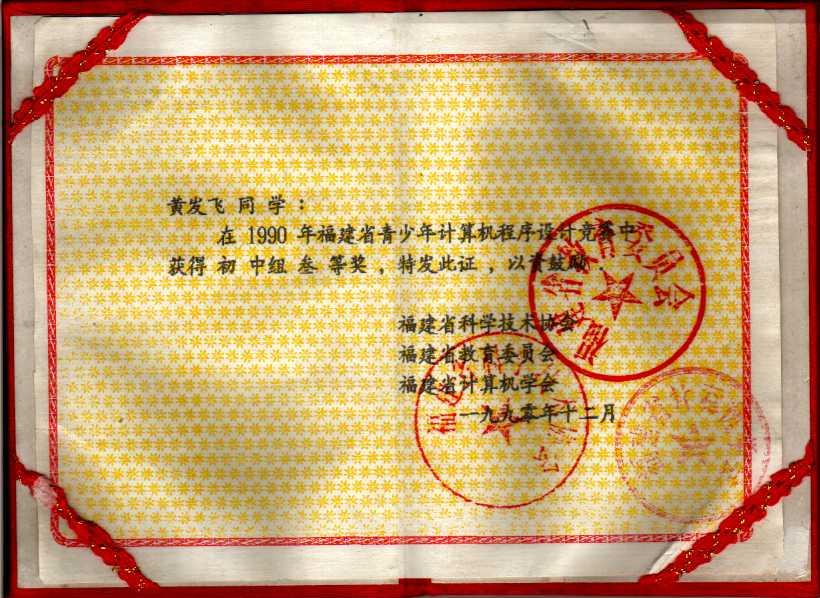 黄发飞 同 学：
在 1990 年福建省青少年计算机程序设计竞赛中
获得 初 中组 叁 等奖，特发此证，以资鼓励．
福建省科学技术协会
福建省教育委员会
福建省计算机学会
一九九零年十二月
福建省教育委员会